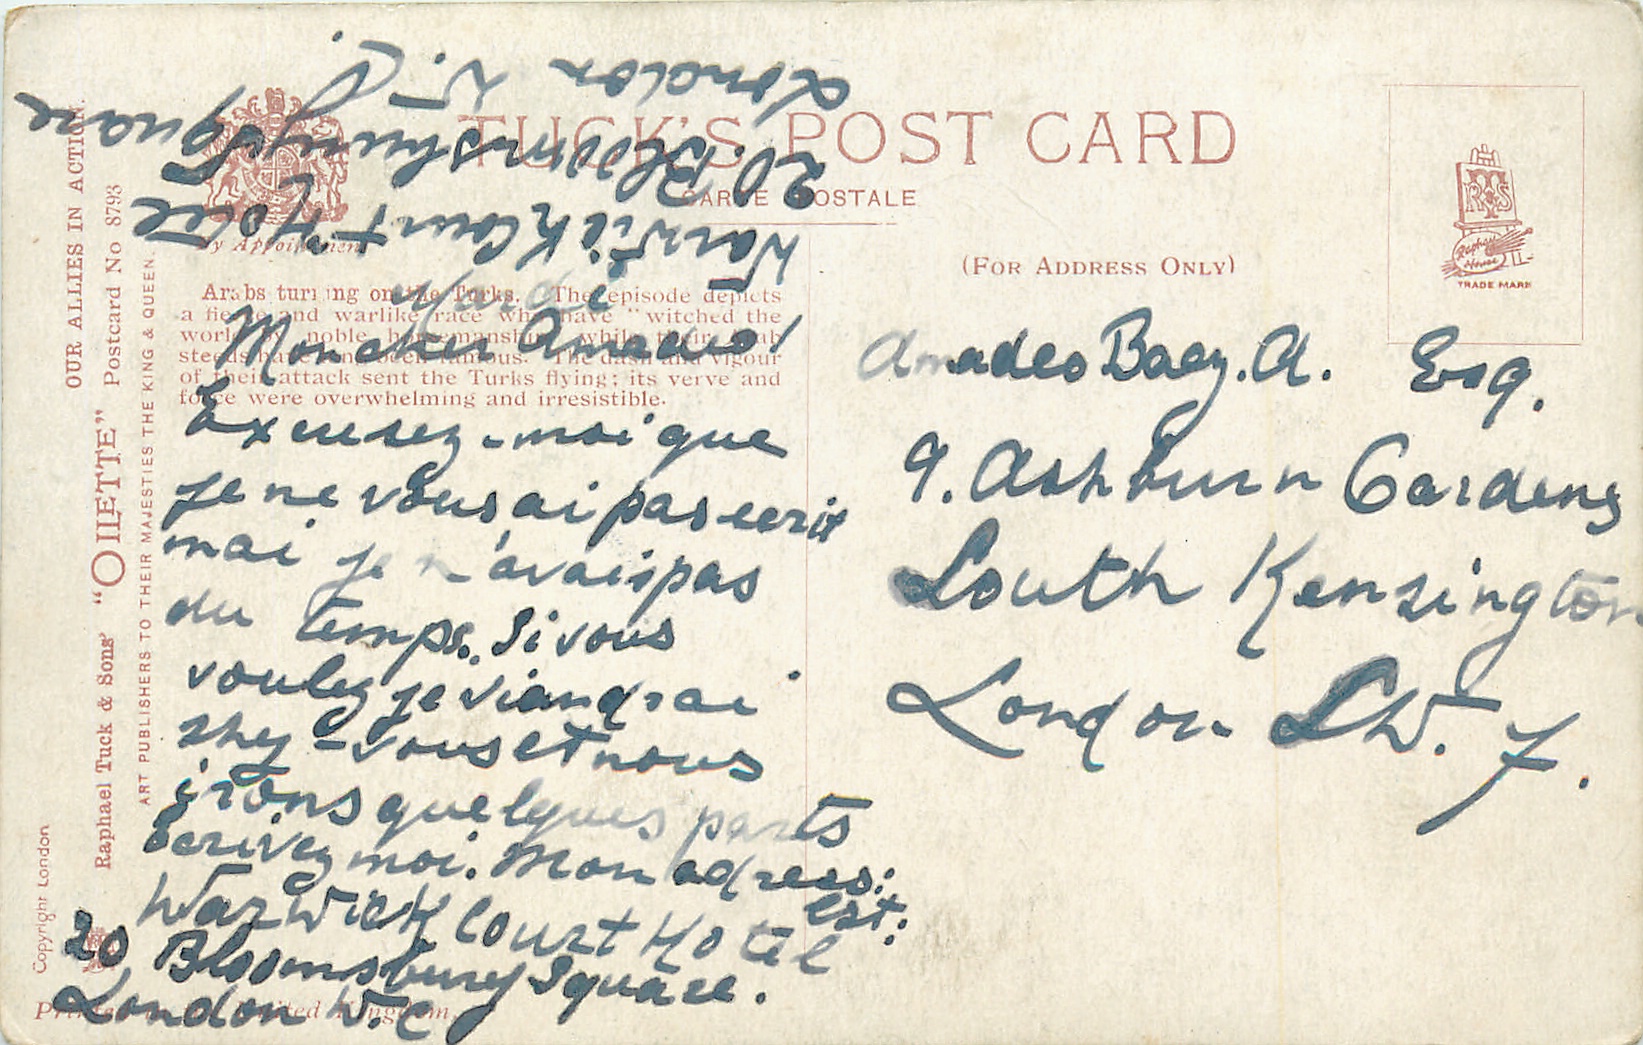 London W.C.
20. Bloomsbury Square
Warwick Court Hotel
Mardi
TUCK'S POST CARD
CARTE POSTALE
By Appointment
(FOR ADDRESS ONLY)
TRADE MARK
Raphael House
OUR ALLIES IN ACTION.
Raphael Tuck & Sons' "OILETTE" Postcard No 8793
ART PUBLISHERS TO THEIR MAJESTIES THE KING & QUEEN.
Copyright London
Arabs turning on the Turks. The episode depicts
a fierce and warlike race who have "witched the
world by noble horsemanship," while their Arab
steeds have been famous. The dash and vigour
of their attack sent the Turks flying; its verve and
force were overwhelming and irresistible.
Mon cher Amadeo!
Excusez-moi que
je ne vous ai pas ecrit
mai je n'avais pas
du temps. Si vous
voulez je viandrai
shez-vous et nous
irons quelques parts
Ecrivez moi. Mon adress:
est:
Warwick Court Hotel
20 Bloomsbury Square.
London W.C
Printed in United Kingdom.
Amadeo Baez. A. Esq.
9. Ashburn Gardens
South Kensington
London SW. 7.